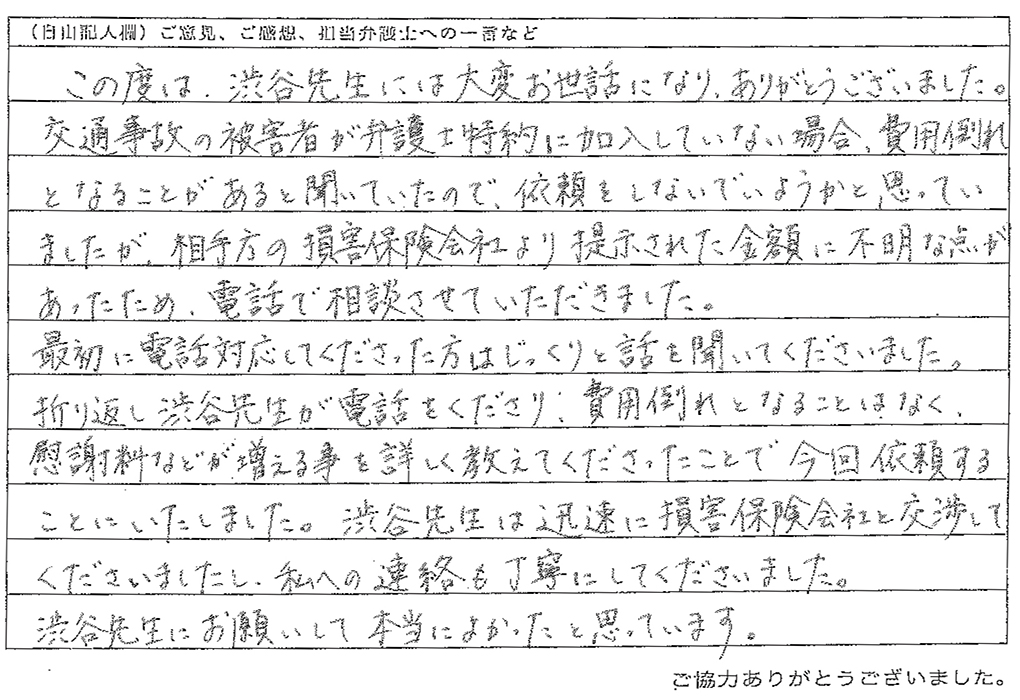 （自由記入欄）ご意見、ご感想、担当弁護士への一言など
この度は、渋谷先生には大変お世話になり、ありがとうございました。
交通事故の被害者が弁護士特約に加入していない場合、費用倒れ
となることがあると聞いていたので、依頼をしないでいようかと思ってい
ましたが、相手方の損害保険会社より提示された金額に不明な点が
あったため、電話で相談させていただきました。
最初に電話対応してくださった方はじっくりと話を聞いてくださいました。
折り返し渋谷先生が電話をくださり、費用倒れとなることはなく、
慰謝料などが増える事を詳しく教えてくださったことで今回依頼する
ことにいたしました。渋谷先生は迅速に損害保険会社と交渉して
くださいましたし、私への連絡も丁寧にしてくださいました。
渋谷先生にお願いして本当によかったと思っています。
ご協力ありがとうございました。